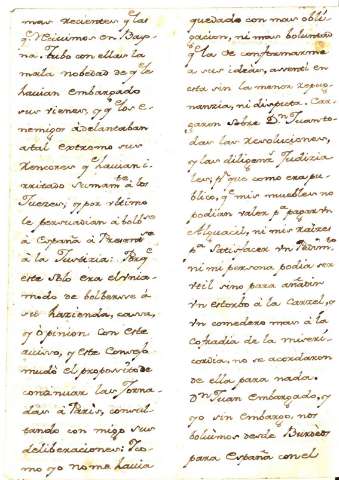 mas recientes q̃ las
q̃ Recivimos en Bayo
na. Tubo con ellas la
mala nobedad de q̃ le
havian embargado
sus vienes, y q̃ los e-
nemigos adelantaban
a tal extremo sus
Rencores q̃ havian i-
rritado sumam.te à los
Juezes, y por ultimo
le persuadian à bolb.e
à España à Present.se
à la Justizia: Porq̃
este solo era el unico
modo de bolberse à
su hazienda, cassa,
y opinion con este
aviso, y este Consejo
mudò el proposito de
continuar las Jorna-
das à Paris, consul-
tando con migo sus
deliberaciones: Y co-
mo yo no me havia
quedado con mas obli-
gacion, ni mas boluntad
q̃ la de conformarme
a sus ideas, assentì en
esta sin la menor repug-
nanzia, ni disputa. Car-
garon sobre D.n Juan to-
das las resoluciones,
y las diligenz.s Judizia-
les, p.r q̃ como era pu-
blico, q̃ mis muebles no
podian valer p.a pagar un
Alguacil, ni mis raizes
p.a satisfacer un Pedim.to
ni mi persona podia ser
util sino para añadir
un estorbo à la Carzel, y
un comedero mas à la
Cofradia de la miseri-
cordia, no se acordaron
de ella para nada.
D.n Juan embargado, y
yo sin embargo, nos
bolvimos desde Burdeos
para España con el